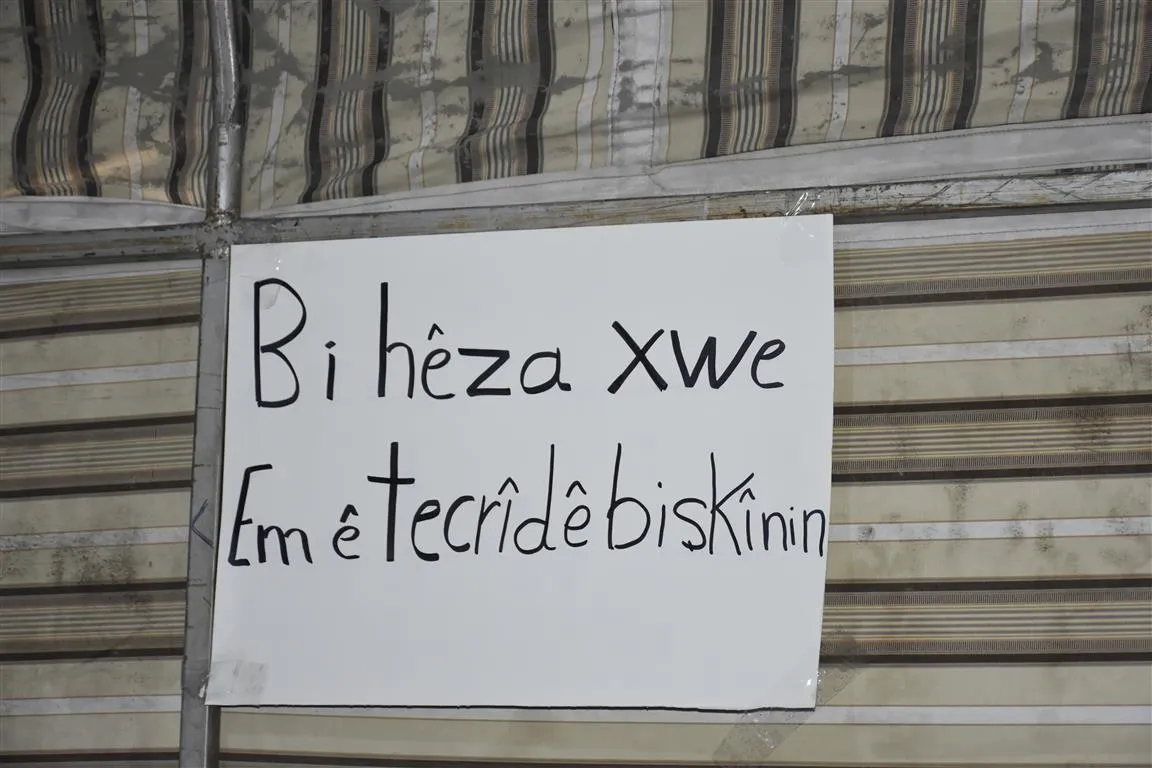 Bi hêza xwe
Em ê tecrîdê biskînin